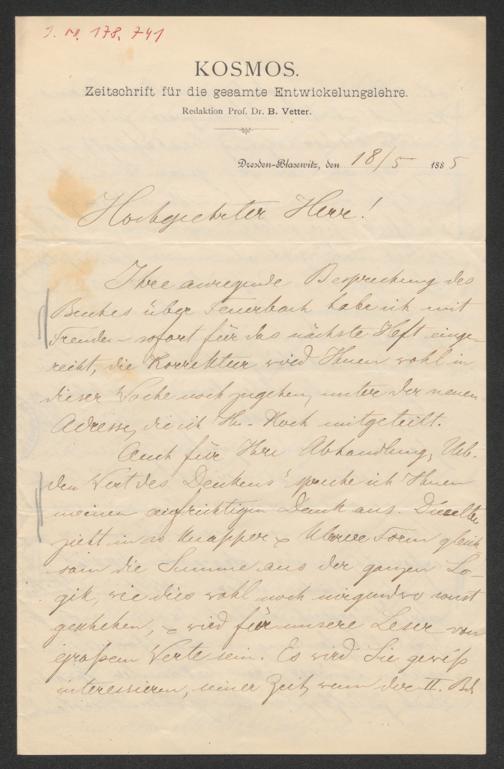 J. N. 178.741
KOSMOS.
Zeitschrift für die gesamte Entwickelungslehre.
Redaktion Prof. Dr. B. Vetter.
Dresden-Blasewitz, den 18/5 1885
Hochgeehrter Herr!
Ihre anregende Besprechung des
Buches über Feuerbach habe ich mit
Freuden – sofort für das nächste Heft einge-
reiht, die Korrektur wird Ihnen wohl in
dieser Woche noch zugehen, unter der neuen
Adresse, die ich Hn. Koch mitgeteilt.
Auch für Ihre Abhandlung „Üb.
den Wert des Denkens“ spreche ich Ihnen
meinen aufrichtigen Dank aus. Dieselbe
zieht in so knapper & klarer Form gleich-
sam die Summe aus der ganzen Lo-
gik, wie dies wohl noch nirgendwo sonst
geschehen, & wird für unsere Leser von
großem Werte sein. Es wird Sie gewiß
interessieren, seiner Zeit, wenn der II. Bd.